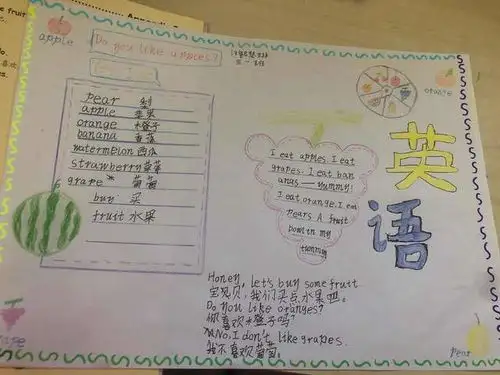 apple
Do you like apples?
pear 梨
apple 苹果
orange 橙子
banana 香蕉
watermelon 西瓜
strawberry 草莓
grape 葡萄
buy 买
fruit 水果
I eat apples, I eat
grapes. I eat ban
anas — yummy!
I eat orange. I em
Pears A fruit
bowl in my
tummy
orange
英
语
Honey, Let's buy some fruit.
宝贝,我们买点水果吧。
Do you like oranges?
你喜欢橙子吗?
No, I don't like grapes.
我不喜欢葡萄。
Pear